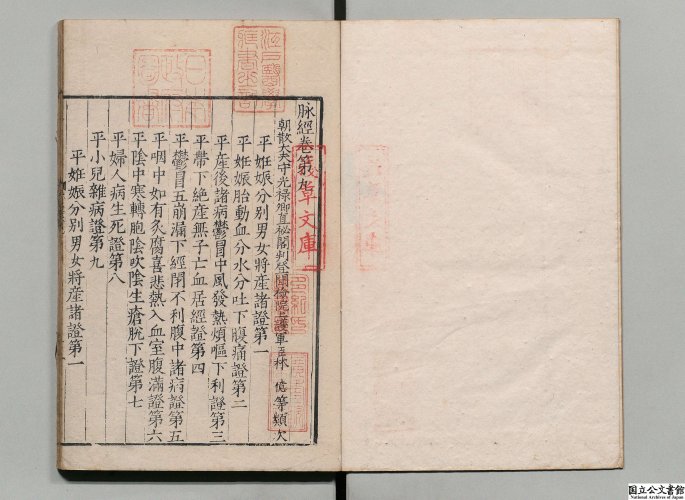 脉經卷第九
朝散大夫守光禄卿直秘閣判登聞檢院上護軍臣林 億等類次
平妊娠分别男女將産諸證第一
平妊娠胎動血分水分吐下腹痛證第二
平産後諸病鬱冒中風發熱煩嘔下利證第三
平帶下絶産無子亡血居經證第四
平鬱冒五崩漏下經閉不利腹中諸病證第五
平咽中如有炙腐喜悲熱入血室腹滿證第六
平陰中寒轉胞陰吹陰生瘡脱下證第七
平婦人病生死證第八
平小兒雜病證第九
平妊娠分别男女將産諸證第一
江戸醫學
藏書之記
日本
政府
圖書
章文庫
国立公文書館
National Archives of Japan